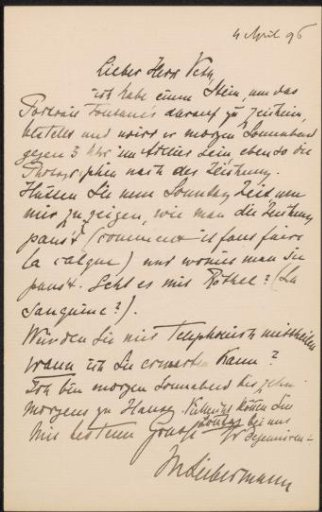 4 April 96
Lieber Herr Veth,
ich habe einen Stein, um das
Portrait Fontane's darauf zu zeichnen,
bestellt und wird er morgen Sonnabend
gegen 3 Uhr im Atelier sein, ebenso die
Photographien nach der Zeichnung.
Hätten Sie nun Sonntag Zeit um
mir zu zeigen, wie man die Zeichnung
paust (comment il faut faire
la calque) und womit man sie
paust. Geht es mit Röthel? (La
sanguine?).
Würden Sie mir telephonisch mittheilen
wann ich Sie erwarten kann?
Ich bin morgen Sonnabend bis zehn
morgens zu Hause. Vielleicht können Sie
Sonntag bei uns
Mit bestem Gruß Ihr
MLiebermann